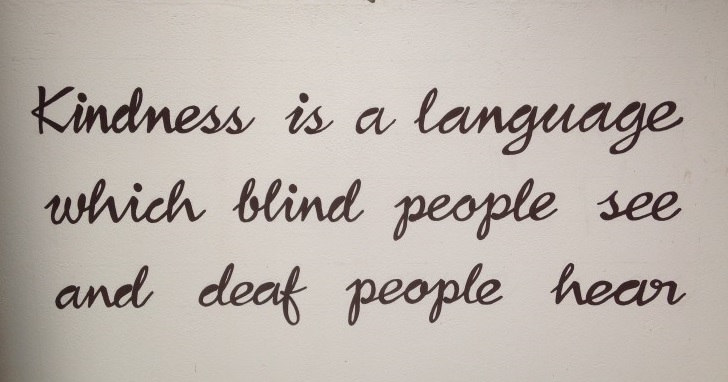 Kindness is a language
which blind people see
and deaf people hear